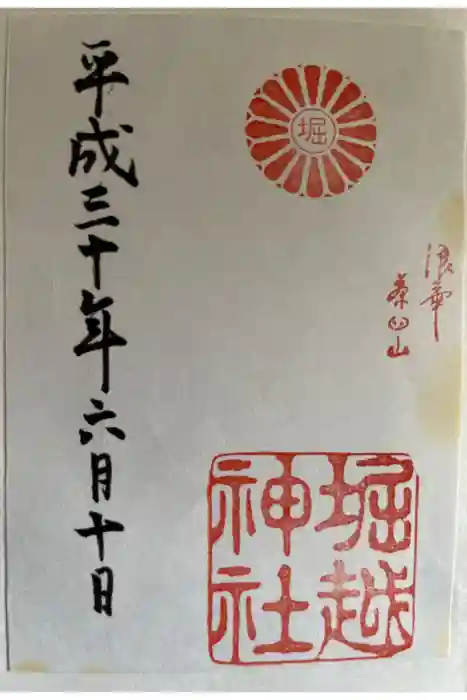 浪華
茶臼山
堀
堀越
神社
平成三十年六月十日